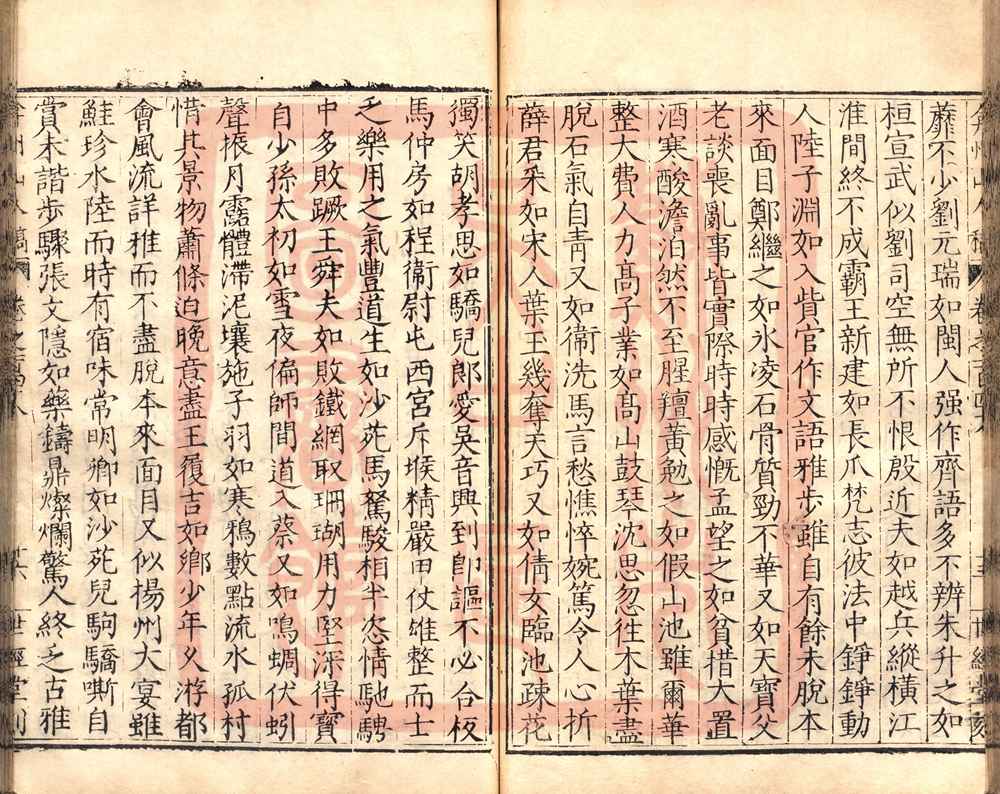 蘼不少劉元瑞如閩人强作齊語多不辨朱升之如
桓宣武似劉司空無所不恨殷近夫如越兵縱橫江
淮間終不成霸王新建如長爪梵志彼法中錚錚動
人陸子淵如入貲官作文語雅步雖自有餘未脫本
來面目鄭繼之如氷凌石骨質勁不華又如天寶父
老談喪亂事皆實際時時感慨孟望之如貧措大置
酒寒酸澹泊然不至腥羶黃勉之如假山池雖爾華
整大費人力高子業如高山鼓琴沈思忽往木葉盡
脫石氣自青又如衞洗馬言愁憔悴婉篤令人心折
薛君采如宋人葉玉幾奪天巧又如倩女臨池疎花
獨笑胡孝思如驕兒郎愛吳音興到卽謳不必合板
馬仲房如程衞尉屯西宮斥堠精嚴甲仗雄整而士
乏樂用之氣豐道生如沙苑馬駑駿相半恣情馳騁
中多敗蹶王舜夫如敗鐵網取珊瑚用力堅深得寳
自少孫太初如雪夜偏師間道入蔡又如鳴蜩伏蚓
聲振月露體滯泥壤施子羽如寒鴉數點流水孤村
惜其景物蕭條迫晚意盡王履吉如鄉少年久游都
會風流詳雅而不盡脫本來面目又似楊州大宴雖
鮭珍水陸而時有宿味常明卿如沙苑兒駒驕嘶自
賞未諧步驟張文隱如藥鑄鼎燦爛驚人終乏古雅
世經堂刻